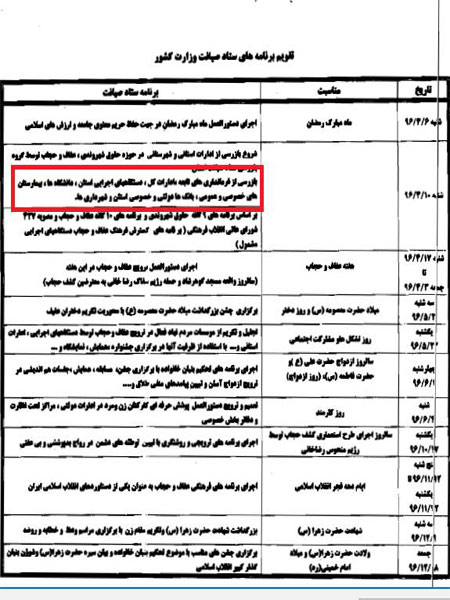 تقویم برنامه های ستاد صیانت وزارت کشور
تاریخ مناسبت برنامه ستاد صیانت
شنبه ۹۶/۳/۶ ماه مبارک رمضان اجرای دستورالعمل ماه مبارک رمضان در جهت حفظ حریم معنوی جامعه و ارزش های اسلامی
شروع بازرسی از ادارات استانی و شهرستانی در حوزه حقوق شهروندی ، عفاف و حجاب توسط گروه
بازرسی از فرمانداری های تابعه ،ادارات کل ، دستگاههای اجرایی استان ، دانشگاه ها ، بیمارستان
های خصوصی و عمومی ، بانک ها دولتی و خصوصی استان و شهرداری ها.
بر اساس برنامه های ۹ گانه حقوق شهروندی و برنامه های ۱۰ گانه عفاف و حجاب و مصوبه ۴۲۷
شورای عالی انقلاب فرهنگی ( برنامه های گسترش فرهنگ عفاف و حجاب دستگاههای اجرایی
مشمول )
۹۶/۴/۱۷
تا
هفته عفاف و حجاب
اجرای دستورالعمل ترویج عفاف و حجاب در این هفته
(سالروز واقعه مسجد گوهرشاد و حمله رژیم سفاک رضا خانی به معترضین کشف حجاب)
سه شنبه
۹۶/۵/۳
میلاد حضرت معصومه (س) و روز دختر
برگزاری جشن بزرگداشت میلاد حضرت معصومه (ع) با محوریت تکریم دختران عفیف
یکشنبه
روز تشکل ها و مشارکت اجتماعی
تجلیل و تکریم از موسسات مردم نهاد فعال در ترویج عفاف و حجاب توسط دستگاههای اجرایی ، ادارات
استانی و... با استفاده از ظرفیت آنها در برگزاری جشنواره ،همایش ، نمایشگاه و ...
چهارشنبه
۹۶/۶/۱
سالروز ازدواج حضرت علی (ع) و
حضرت فاطمه (س)، (روز ازدواج)
اجرای برنامه های تحکیم بنیان خانواده با برگزاری جشن، مسابقه ، همایش ،جلسات هم اندیشی در
ترویج ازدواج آسان و تبیین پیامدهای منفی طلاق و....
شنبه
۹۶/۶/۴
روز کارمند
تعمیم و ترویج دستورالعمل پوشش حرفه ای کارکنان زن ومرد در ادارات دولتی ، مراکز تحت نظارت
و دفاتر بخش خصوصی
یکشنبه
۹۶/۱۰/۱۷
سالروز اجرای طرح استعماری کشف حجاب توسط
رژیم منحوس رضاخانی
اجرای برنامه های ترویجی و روشنگری با تبیین توطئه های دشمن در رواج بدپوششی و بی عفتی
ایام دهه فجر انقلاب اسلامی
اجرای برنامه های فرهنگی عفاف و حجاب به عنوان یکی از دستاوردهای انقلاب اسلامی ایران
یکشنبه
سه شنبه
شهادت حضرت زهرا (س)
بزرگداشت شهادت حضرت زهرا (س) وتکریم مقام زن با برگزاری مراسم وعظ و خطابه و روضه
جمعه
ولادت حضرت زهرا(س) و میلاد
امام خمینی(ره)
برگزاری جشن های مناسب با موضوع تحکیم بنیان خانواده و بیان سیره حضرت زهرا(س) وشوزن بنیان
گذار کبیر انقلاب اسلامی